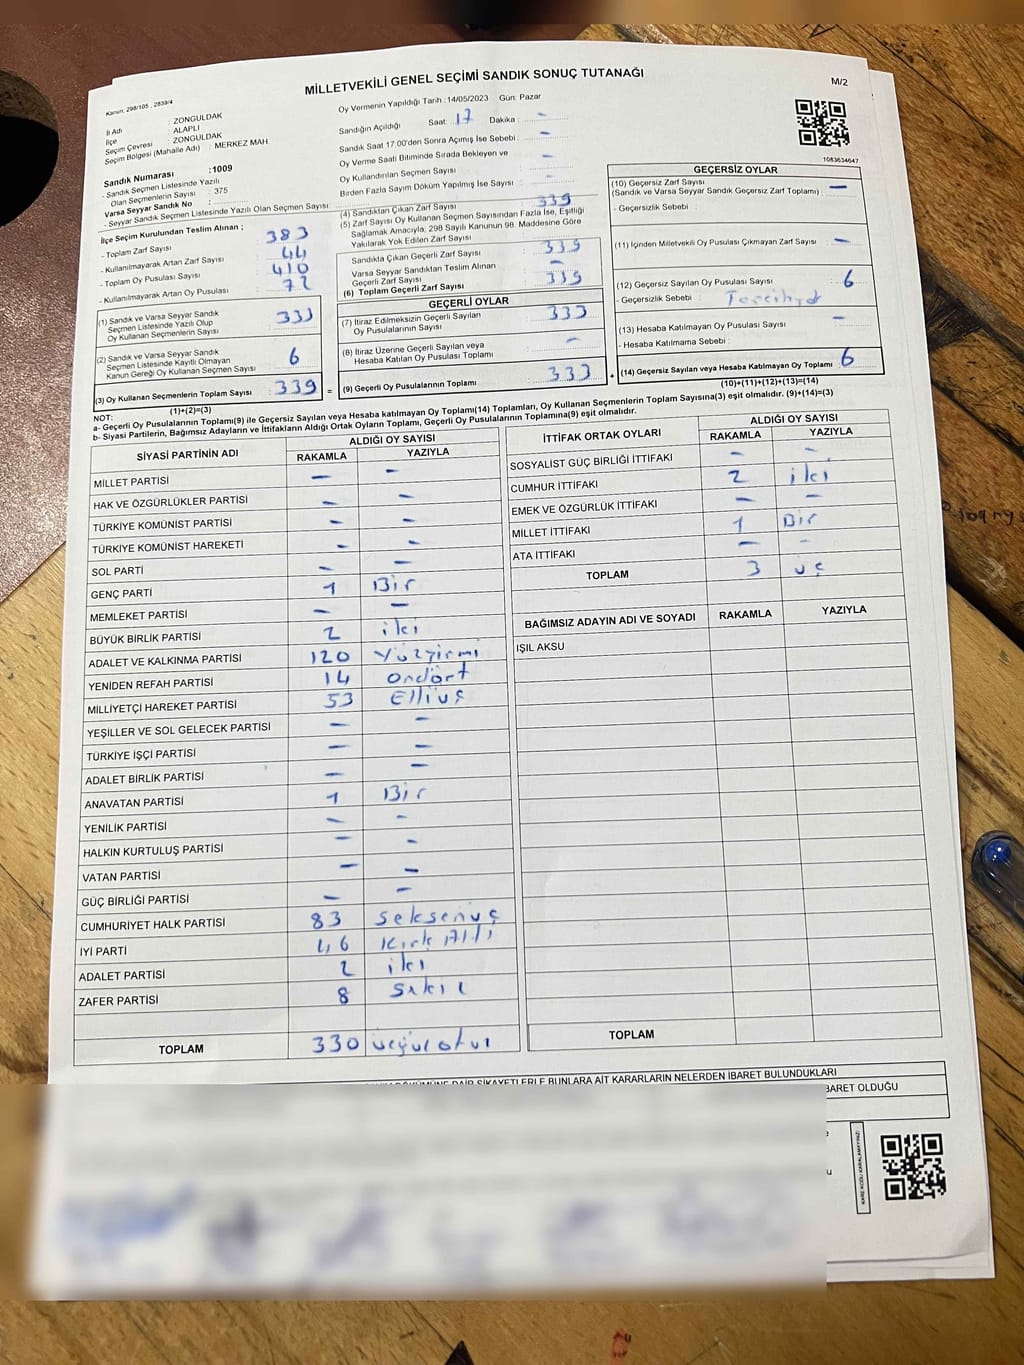 MİLLETVEKİLİ GENEL SEÇİMİ SANDIK SONUÇ TUTANAĞI
M/2
Kanun, 298/105 , 2839/4
İl Adı : ZONGULDAK
İlçe : ALAPLI
Seçim Çevresi : ZONGULDAK
Seçim Bölgesi (Mahalle Adı) : MERKEZ MAH
Oy Vermenin Yapıldığı Tarih :14/05/2023 Gün: Pazar
Sandığın Açıldığı Saat: 17 Dakika : -
Sandık Saat 17:00'den Sonra Açımış İse Sebebi : -
Oy Verme Saati Bitiminde Sırada Bekleyen ve
Oy Kullandırılan Seçmen Sayısı : -
Birden Fazla Sayım Döküm Yapılmış İse Sayısı : -
1083634647
Sandık Numarası :1009
- Sandık Seçmen Listesinde Yazılı
Olan Seçmenlerin Sayısı : 375
Varsa Seyyar Sandık No :
- Seyyar Sandık Seçmen Listesinde Yazılı Olan Seçmen Sayısı:
İlçe Seçim Kurulundan Teslim Alınan ;
- Toplam Zarf Sayısı : 383
- Kullanılmayarak Artan Zarf Sayısı : 44
- Toplam Oy Pusulası Sayısı : 410
- Kullanılmayarak Artan Oy Pusulası : 72
(1) Sandık ve Varsa Seyyar Sandık
Seçmen Listesinde Yazılı Olup
Oy Kullanan Seçmenlerin Sayısı : 333
(2) Sandık ve Varsa Seyyar Sandık
Seçmen Listesinde Kayıtlı Olmayan
Kanun Gereği Oy Kullanan Seçmen Sayısı : 6
(3) Oy Kullanan Seçmenlerin Toplam Sayısı : 339
(1)+(2)=(3)
(4) Sandıktan Çıkan Zarf Sayısı : 339
(5) Zarf Sayısı Oy Kullanan Seçmen Sayısından Fazla İse, Eşitliği
Sağlamak Amacıyla; 298 Sayılı Kanunun 98. Maddesine Göre
Yakılarak Yok Edilen Zarf Sayısı :
Sandıkta Çıkan Geçerli Zarf Sayısı : 339
Varsa Seyyar Sandıktan Teslim Alınan
Geçerli Zarf Sayısı : -
(6) Toplam Geçerli Zarf Sayısı : 339
GEÇERLİ OYLAR
(7) İtiraz Edilmeksizin Geçerli Sayılan
Oy Pusulalarının Sayısı : 333
(8) İtiraz Üzerine Geçerli Sayılan veya
Hesaba Katılan Oy Pusulası Toplamı : -
= (9) Geçerli Oy Pusulalarının Toplamı : 333
GEÇERSİZ OYLAR
(10) Geçersiz Zarf Sayısı
(Sandık ve Varsa Seyyar Sandık Geçersiz Zarf Toplamı) : -
- Geçersizlik Sebebi :
(11) İçinden Milletvekili Oy Pusulası Çıkmayan Zarf Sayısı : -
(12) Geçersiz Sayılan Oy Pusulası Sayısı : 6
- Geçersizlik Sebebi :
(13) Hesaba Katılmayan Oy Pusulası Sayısı : -
- Hesaba Katılmama Sebebi :
+ (14) Geçersiz Sayılan veya Hesaba Katılmayan Oy Toplamı : 6
(10)+(11)+(12)+(13)=(14)
NOT:
a- Geçerli Oy Pusulalarının Toplamı(9) ile Geçersiz Sayılan veya Hesaba katılmayan Oy Toplamı(14) Toplamları, Oy Kullanan Seçmenlerin Toplam Sayısına(3) eşit olmalıdır. (9)+(14)=(3)
b- Siyasi Partilerin, Bağımsız Adayların ve İttifakların Aldığı Ortak Oyların Toplamı, Geçerli Oy Pusulalarının Toplamına(9) eşit olmalıdır.
SİYASİ PARTİNİN ADI ALDIĞI OY SAYISI
RAKAMLA YAZIYLA
MİLLET PARTİSİ - -
HAK VE ÖZGÜRLÜKLER PARTİSİ - -
TÜRKİYE KOMÜNİST PARTİSİ - -
TÜRKİYE KOMÜNİST HAREKETİ - -
SOL PARTİ - -
GENÇ PARTİ 1 Bir
MEMLEKET PARTİSİ - -
BÜYÜK BİRLİK PARTİSİ 2 iki
ADALET VE KALKINMA PARTİSİ 120 Yüzyirmi
YENİDEN REFAH PARTİSİ 14 Ondört
MİLLİYETÇİ HAREKET PARTİSİ 53 Elliüç
YEŞİLLER VE SOL GELECEK PARTİSİ - -
TÜRKİYE İŞÇİ PARTİSİ - -
ADALET BİRLİK PARTİSİ - -
ANAVATAN PARTİSİ 1 Bir
YENİLİK PARTİSİ - -
HALKIN KURTULUŞ PARTİSİ - -
VATAN PARTİSİ - -
GÜÇ BİRLİĞİ PARTİSİ - -
CUMHURİYET HALK PARTİSİ 83 Seksenüç
İYİ PARTİ 46 Kırk Altı
ADALET PARTİSİ 2 iki
ZAFER PARTİSİ 8 Sekiz
TOPLAM 330 üçyüz otuz
İTTİFAK ORTAK OYLARI ALDIĞI OY SAYISI
RAKAMLA YAZIYLA
SOSYALİST GÜÇ BİRLİĞİ İTTİFAKI - -
CUMHUR İTTİFAKI 2 iki
EMEK VE ÖZGÜRLÜK İTTİFAKI - -
MİLLET İTTİFAKI 1 Bir
ATA İTTİFAKI - -
TOPLAM 3 üç
BAĞIMSIZ ADAYIN ADI VE SOYADI RAKAMLA YAZIYLA
IŞIL AKSU
TOPLAM
DÖKÜMÜNE DAİR ŞİKAYETLERLE BUNLARA AİT KARARLARIN NELERDEN İBARET BULUNDUKLARI
BARET OLDUĞU
KARE KODU KARALAMAYINIZ!